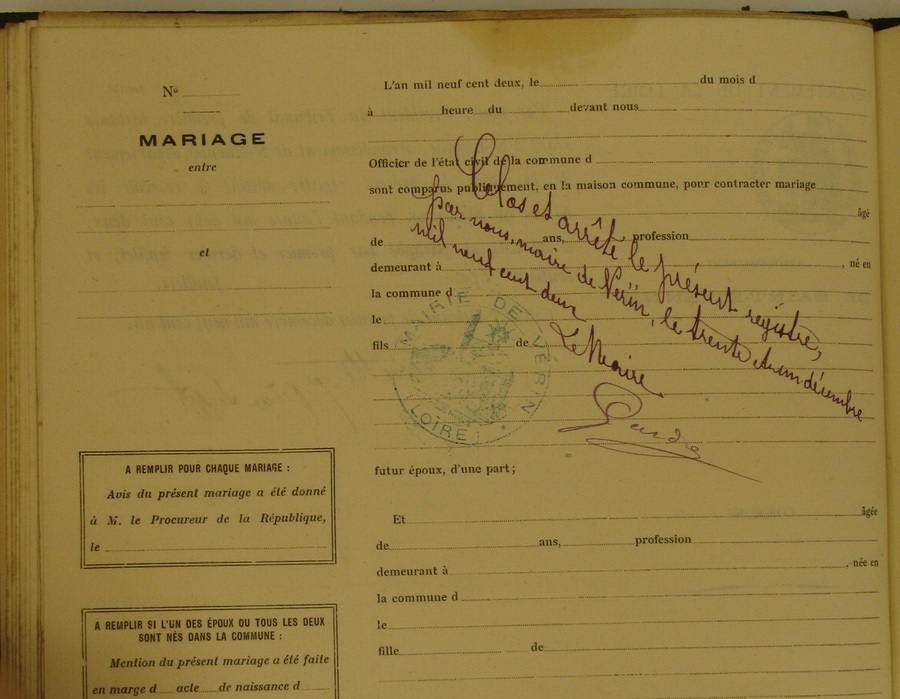 Nº
MARIAGE
entre
et
L'an mil neuf cent deux, le du mois d
à heure du devant nous
Officier de l'état civil de la commune d
sont comparus publiquement, en la maison commune, pour contracter mariage
âgé
de ans, profession
demeurant à , né en
la commune d
le
fils de
Clos et arrêté le présent régistre,
par nous, maire de Vérin, le trente et un décembre
mil neuf cent deux
Le Maire
MAIRIE DE VERIN
LOIRE
futur époux, d'une part;
Et âgée
de ans, profession
demeurant à , née en
la commune d
le
fille de
A REMPLIR POUR CHAQUE MARIAGE :
Avis du présent mariage a été donné
à M. le Procureur de la République,
le
A REMPLIR SI L'UN DES ÉPOUX OU TOUS LES DEUX
SONT NÉS DANS LA COMMUNE :
Mention du présent mariage a été faite
en marge d acte de naissance d